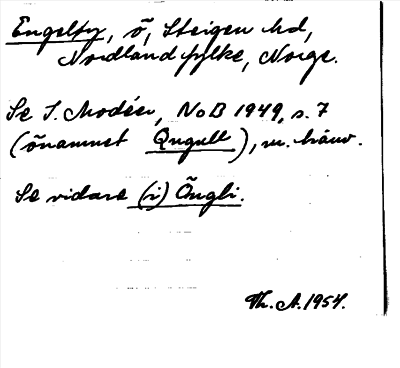 Engeløy, ö, Steigen hd,
Nordland fylke, Norge.
Se I. Modéer, NoB 1949, s. 7
(önamnet Qngull), m. hänv.
Se vidare (i) Õngli.
Th. A. 1954.